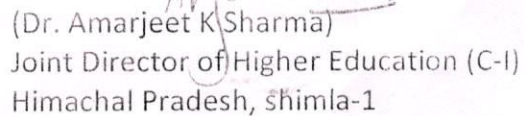 (Dr. Amarjeet K Sharma)
Joint Director of Higher Education (C-I)
Himachal Pradesh, shimla-1